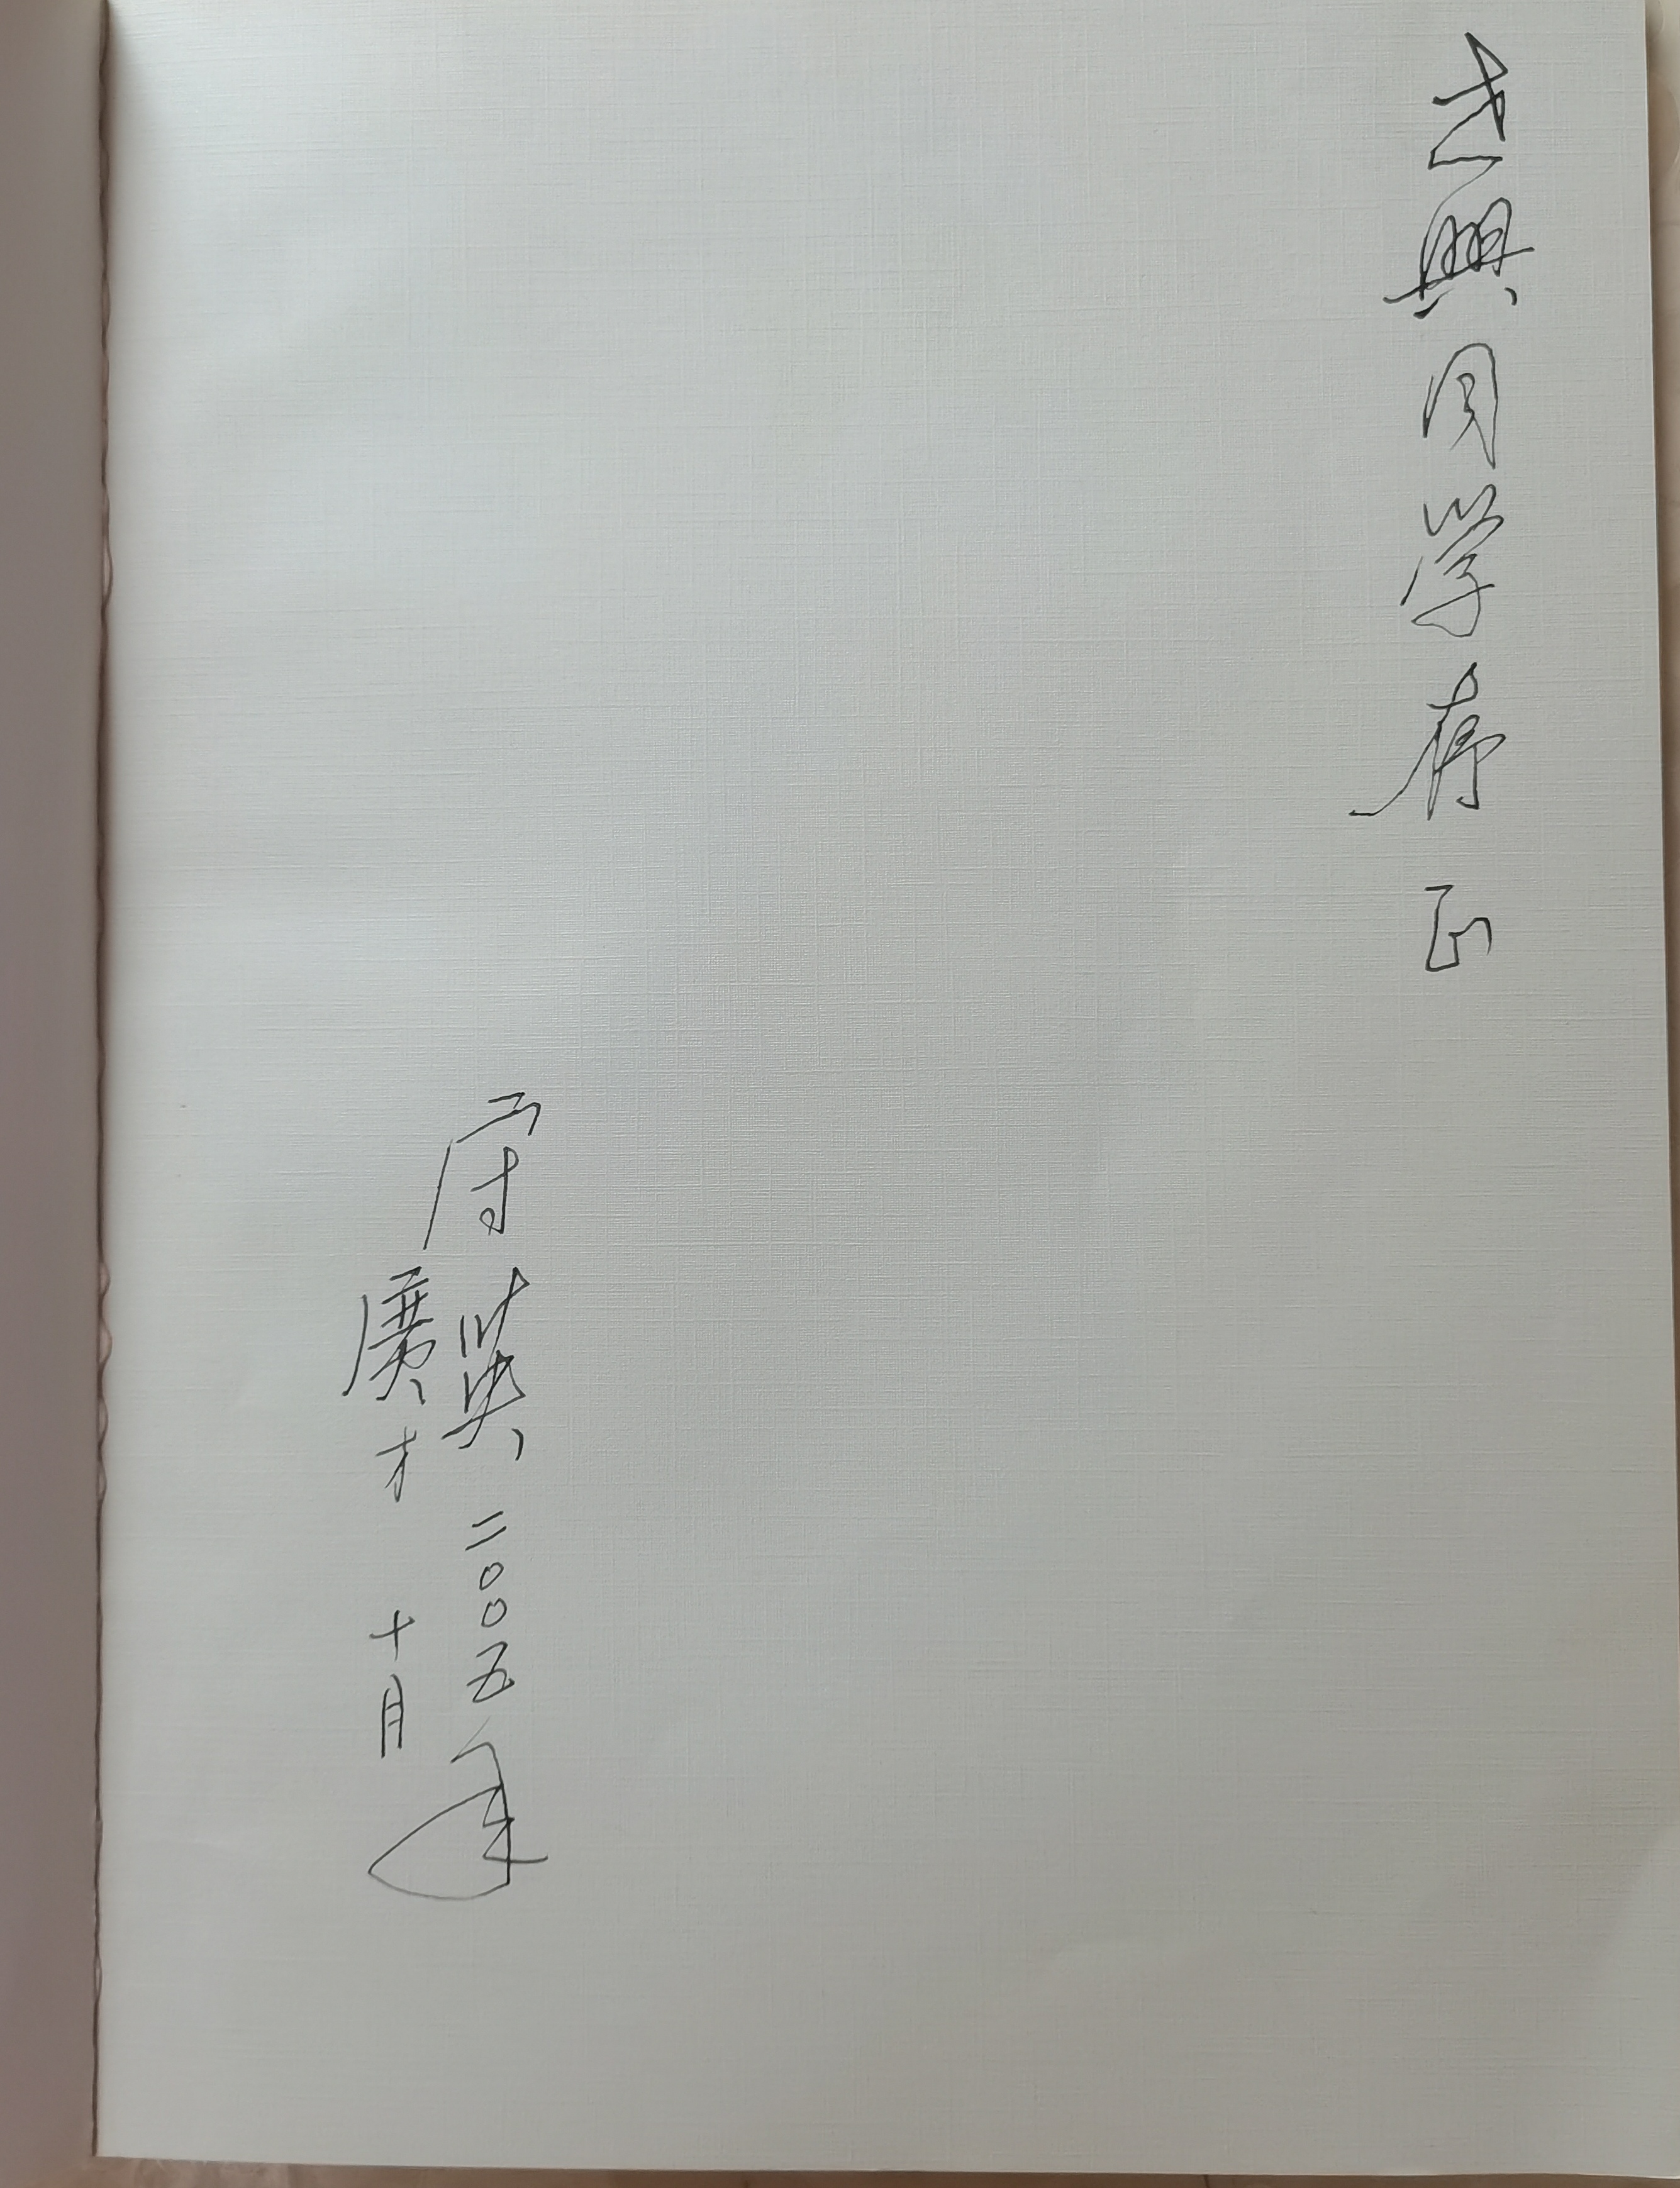 志興同学存正
守英二〇〇五年
廣才 十月